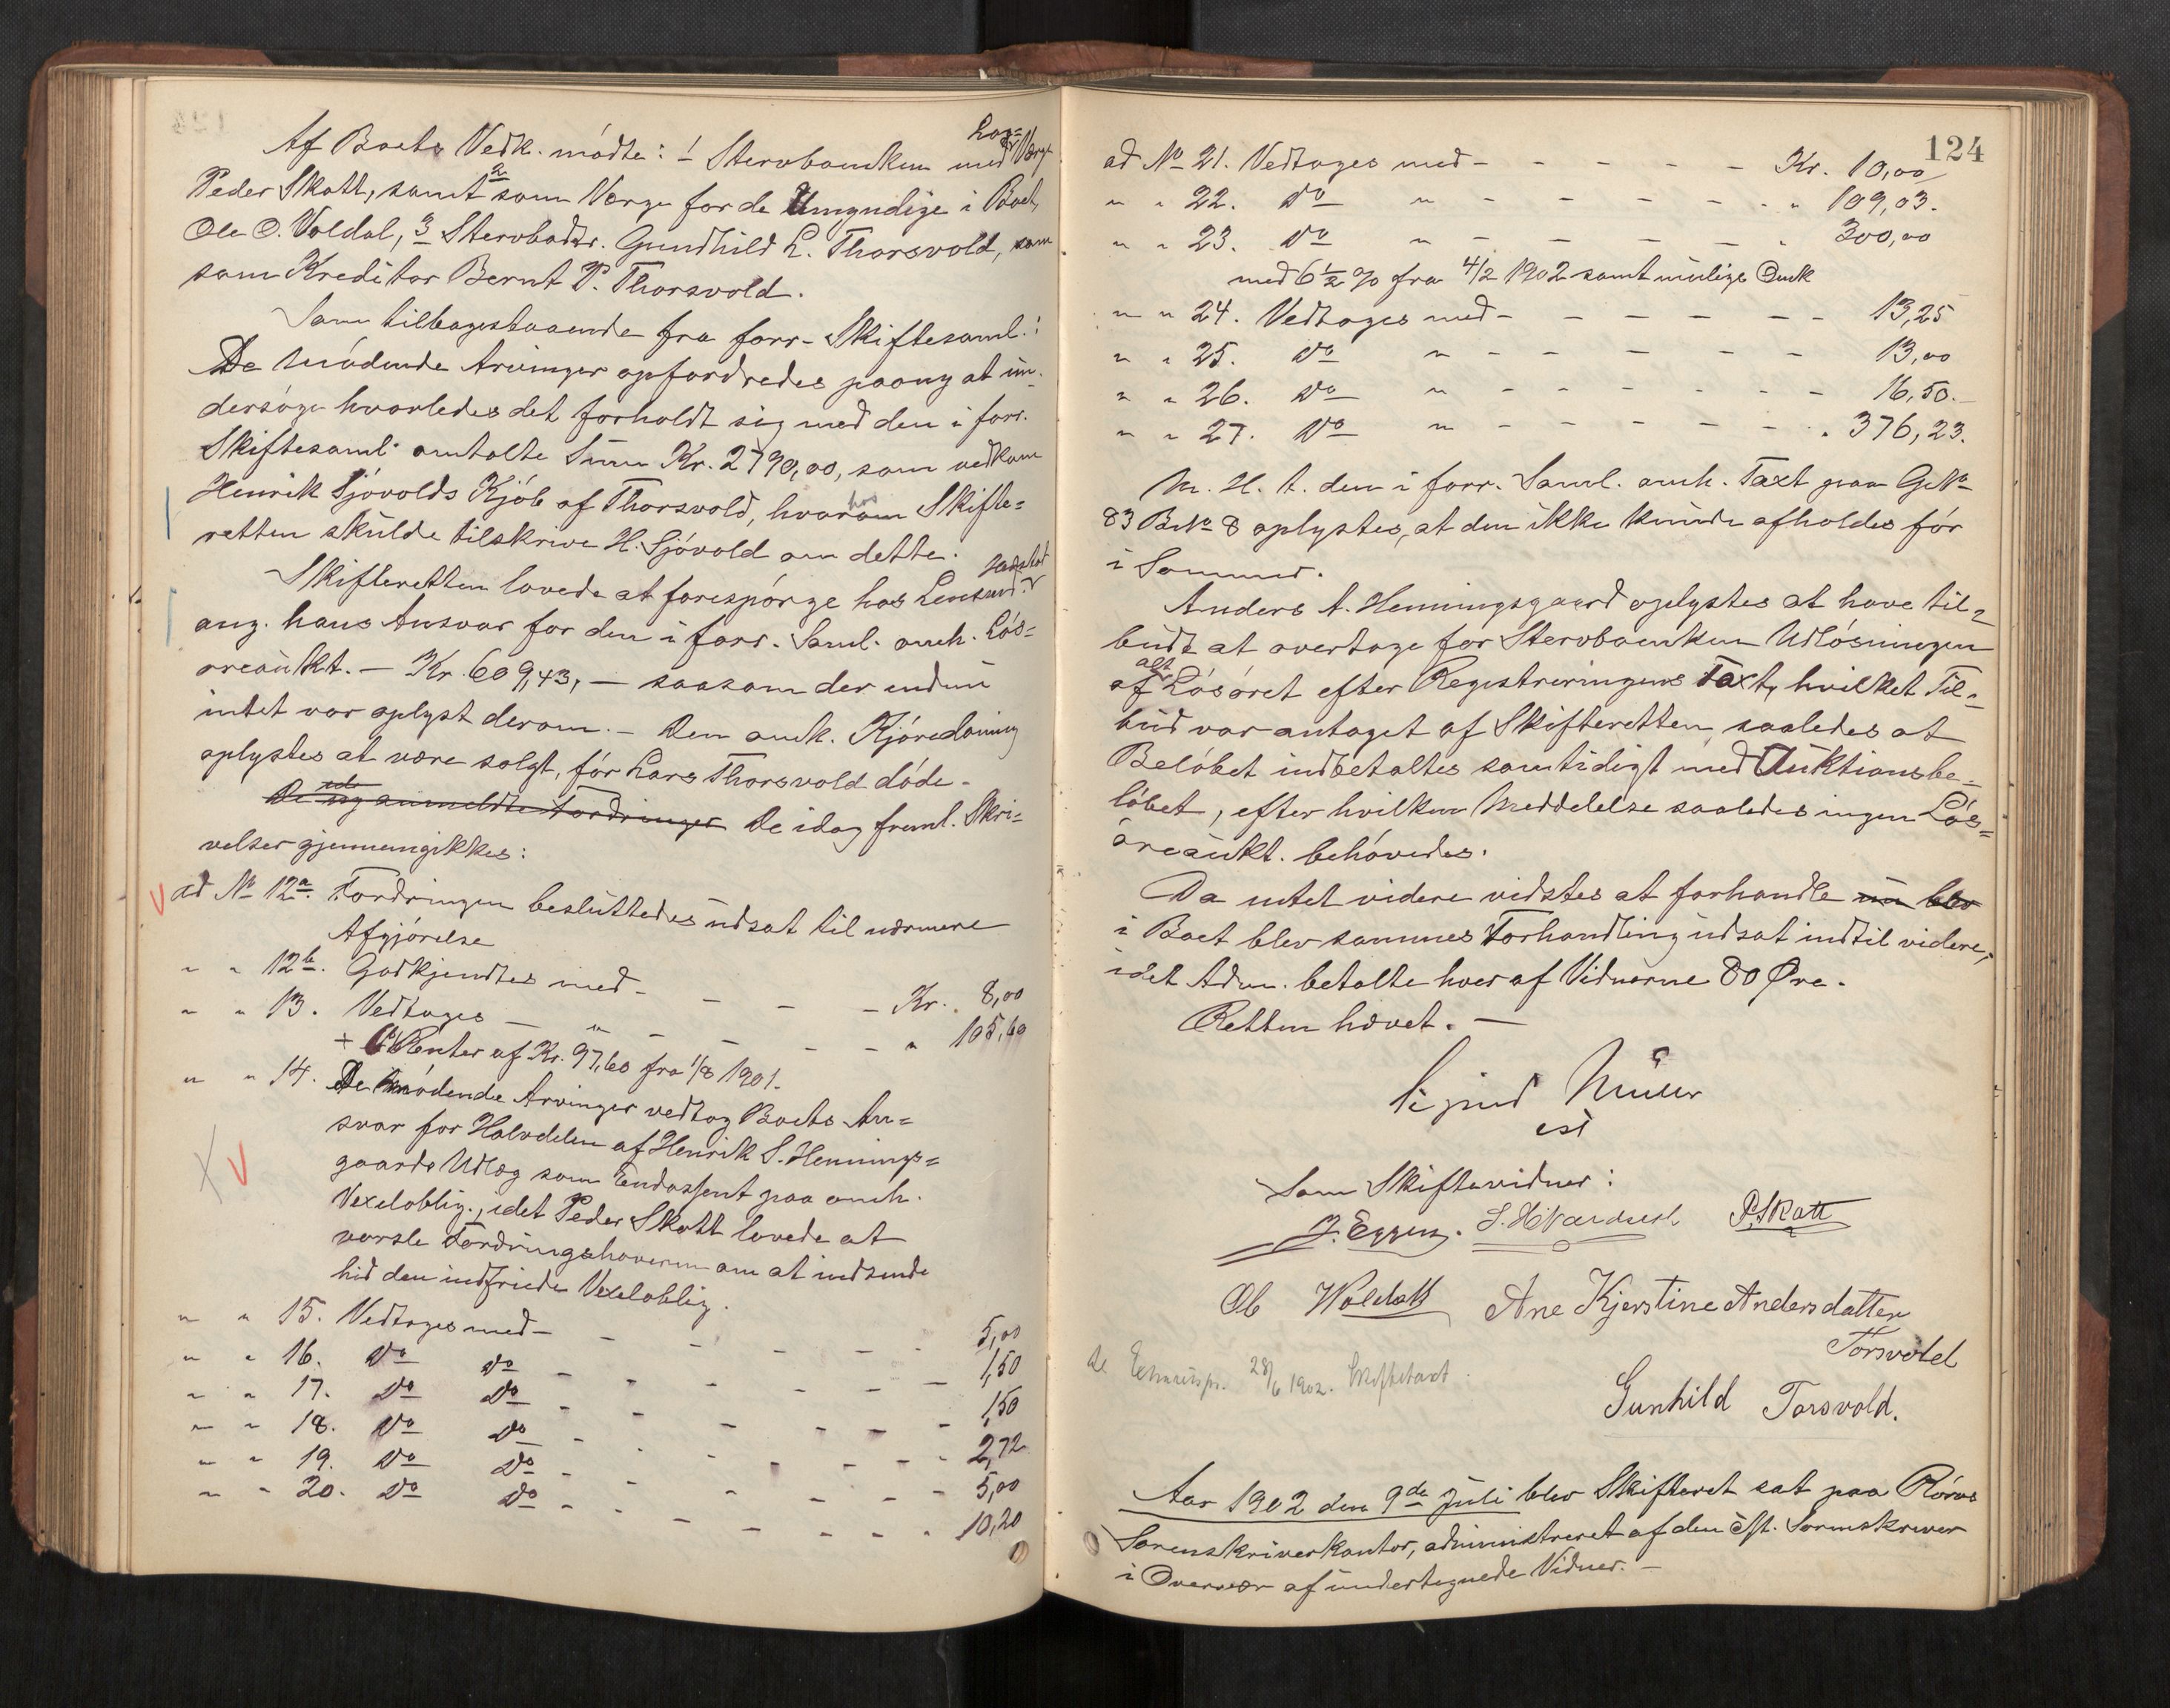 Af Boets Vedk. mødte: 1 Stervboenken med Lav-
værge
Peder Skott, samt 2 som Værge for de Umyndige i Boet,
Ole O. Voldal, 3 Stervbodtr. Gundhild L. Thorsvold, sam
som Kreditor Bernt P. Thorsvold.
Som tilbagestaaende fra forr. Skiftesaml.:
De mødende Arvinger opfordredes paany at un-
dersøge hvorledes det forholdt sig med den i forr.
Skiftesaml. omtalte Sum Kr. 2790,00, som vedkom
Henrik Sjøvolds Kjøb af Thorsvold, hvorom Skifte=
retten skulde tilskrive H. Sjøvold om dette.
Skifteretten lovede at forespørge hos Lensmd.
ang. hans Ansvar for den i forr. Saml. omh. Løs=
øreaukt. — Kr. 609,43, — saasom der endnu
intet var oplyst derom. — Den omh. Kjøredoning
oplystes at være solgt, før Lars Thorsvold døde.
De ny anmeldte Fordringer De idag freml. Skri=
velser gjennemgikkes:
ad No 12a. Fordringen besluttedes udsat til nærmere
Afgjørelse
" " 12b. Godkjendtes med - - - - Kr. 8,00
" " 13. Vedtages — " - - - - " 105,60
+ Renter af Kr. 97,60 fra 1/8 1901.
" " 14. De mødende Arvinger vedtog Boets An=
svar for Halvdelen af Henrik S. Hennings=
gaards Udlæg som Endossent paa omh.
Vexeloblig., idet Peder Skott lovede at
varsle Fordringshaveren om at indsende
hid den indfriede Vexeloblig.
" " 15. Vedtages med - - - - - 5,00
" " 16. Do Do - - - - - 1,50
" " 17. Do Do - - - - - 1,50
" " 18. Do Do - - - - - 2,72
" " 19. Do Do - - - - - 5,00
" " 20. Do Do - - - - - 10,20
124
ad No 21. Vedtages med - - - - - Kr. 10,00
" " 22. Do " - - - - - " 109,03.
" " 23. Do " - - - - - " 300,00
med 6 1/2 % fra 4/2 1902 samt mulige Omk
" " 24. Vedtages med - - - - - 13,25
" " 25. Do " - - - - - 13,00
" " 26. Do " - - - - - 16,50.
" " 27. Do " - - - - - " 376,23.
M. H. t. den i forr. Saml. omh. Taxt paa GNo
83 BNo 8 oplystes, at den ikke kunde afholdes før
i Sommer.
Anders A. Henningsgaard oplystes at have til=
budt at overtage for Stervboenken Udløsningen
af alt Løsøret efter Registreringens Taxt, hvilket Til=
bud var antaget af Skifteretten, saaledes at
Beløbet indbetaltes samtidigt med Auktionsbe=
løbet, efter hvilken Meddelelse saaledes ingen Løs=
øreaukt. behøvedes.
Da intet videre vidstes at forhandle nu blev
i Boet blev sammes Forhandling udsat indtil videre,
idet Adm. betalte hver af Vidnerne 80 Øre.
Retten hævet. —
Sigurd Müller
cst
Som Skiftevidner:
J. Eggen. P. Skott
Ole Woldall Ane Kjerstine Andersdatter
Torsvold
28/6 1902.
Gunhild Torsvold.
Aar 1902 den 9de Juli blev Skifteret sat paa Røros
Sorenskriverkontor, administreret af den cst. Sorenskriver
i Overvær af undertegnede Vidner. —